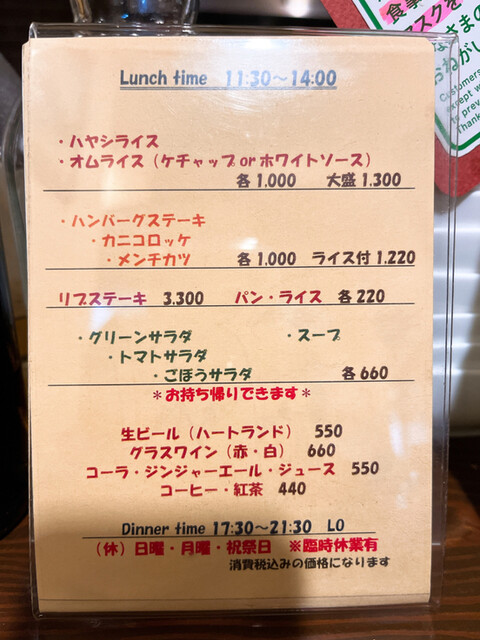 食事
マスクを
なさまの
おねがい
Customers
except w
to prev
Thank
Lunch time 11:30～14:00
・ハヤシライス
・オムライス（ケチャップorホワイトソース）
各1.000 大盛1.300
・ハンバーグステーキ
・カニコロッケ
・メンチカツ 各1.000 ライス付1.220
リブステーキ 3.300 パン・ライス 各220
・グリーンサラダ ・スープ
・トマトサラダ
・ごぼうサラダ 各660
＊お持ち帰りできます＊
生ビール（ハートランド） 550
グラスワイン（赤・白） 660
コーラ・ジンジャーエール・ジュース 550
コーヒー・紅茶 440
Dinner time 17:30～21:30 LO
（休）日曜・月曜・祝祭日 ※臨時休業有
消費税込みの価格になります